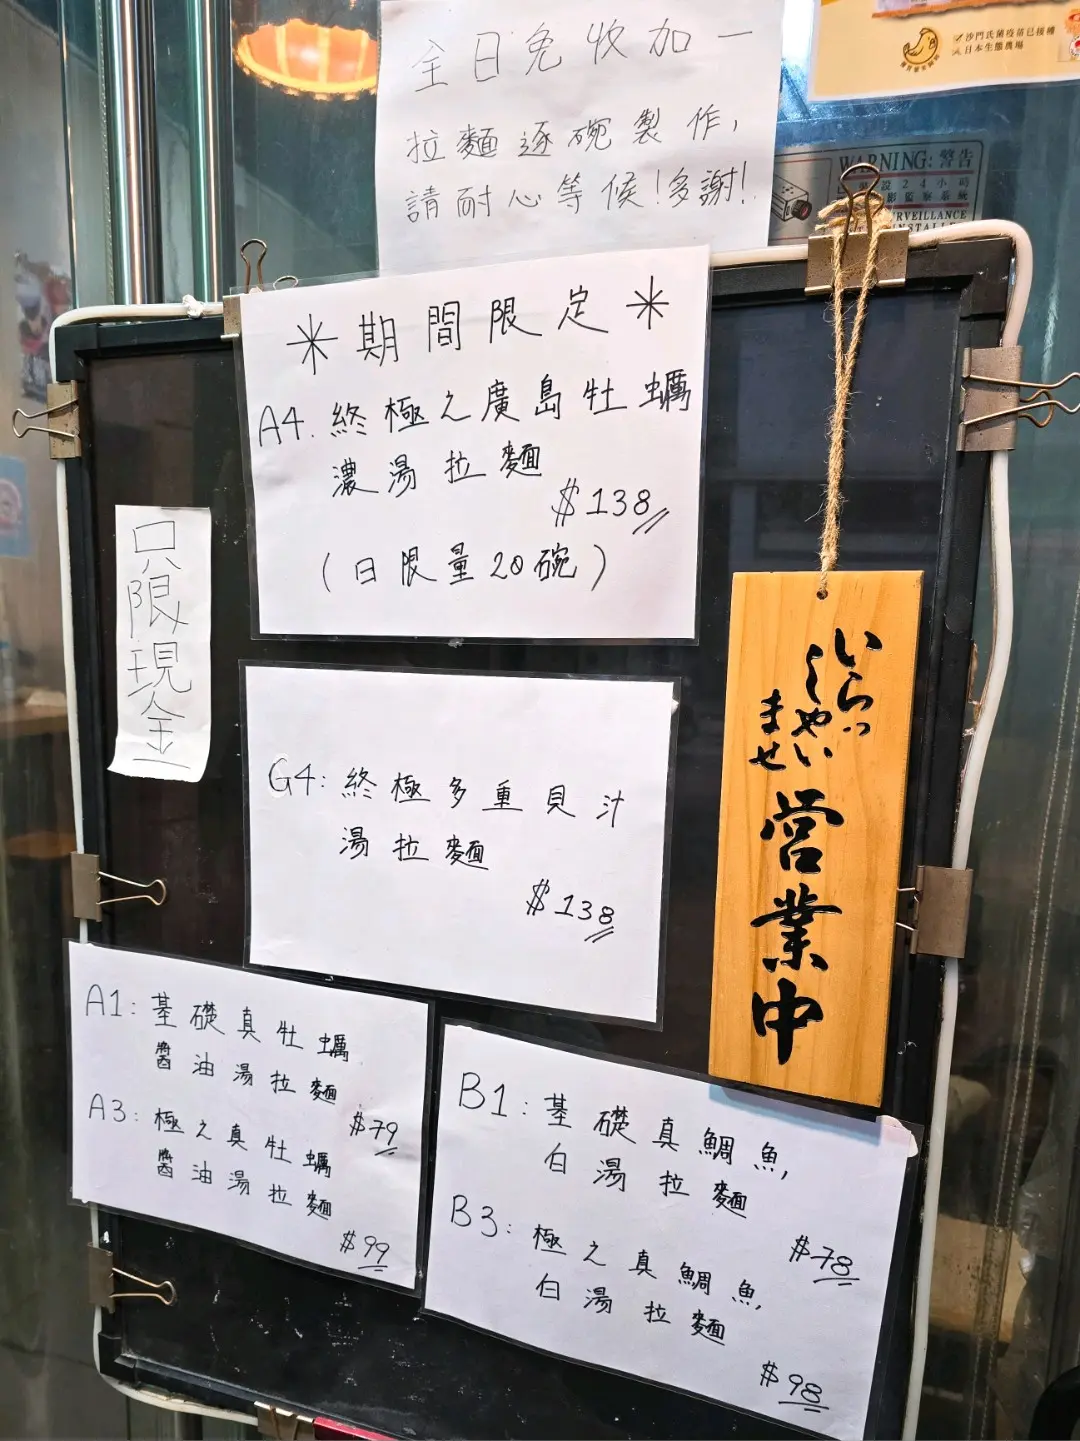 全日免收加一
拉麵逐碗製作,
請耐心等候!多謝!!
沙門氏菌疫苗已接種
日本生態農場
WARNING: 警告
裝設24小時
影監察系統
SURVEILLANCE
INSTALLE
*期間限定*
A4. 終極之廣島牡蠣
濃湯拉麵
$138
(日限量20碗)
只限現金
G4: 終極多重貝汁
湯拉麵
$138
いらっ
しゃい
ませ
営業中
A1: 基礎真牡蠣
醬油湯拉麵
$79
A3: 極之真牡蠣
醬油湯拉麵
$99
B1: 基礎真鯛魚,
白湯拉麵
$78
B3: 極之真鯛魚,
白湯拉麵
$98